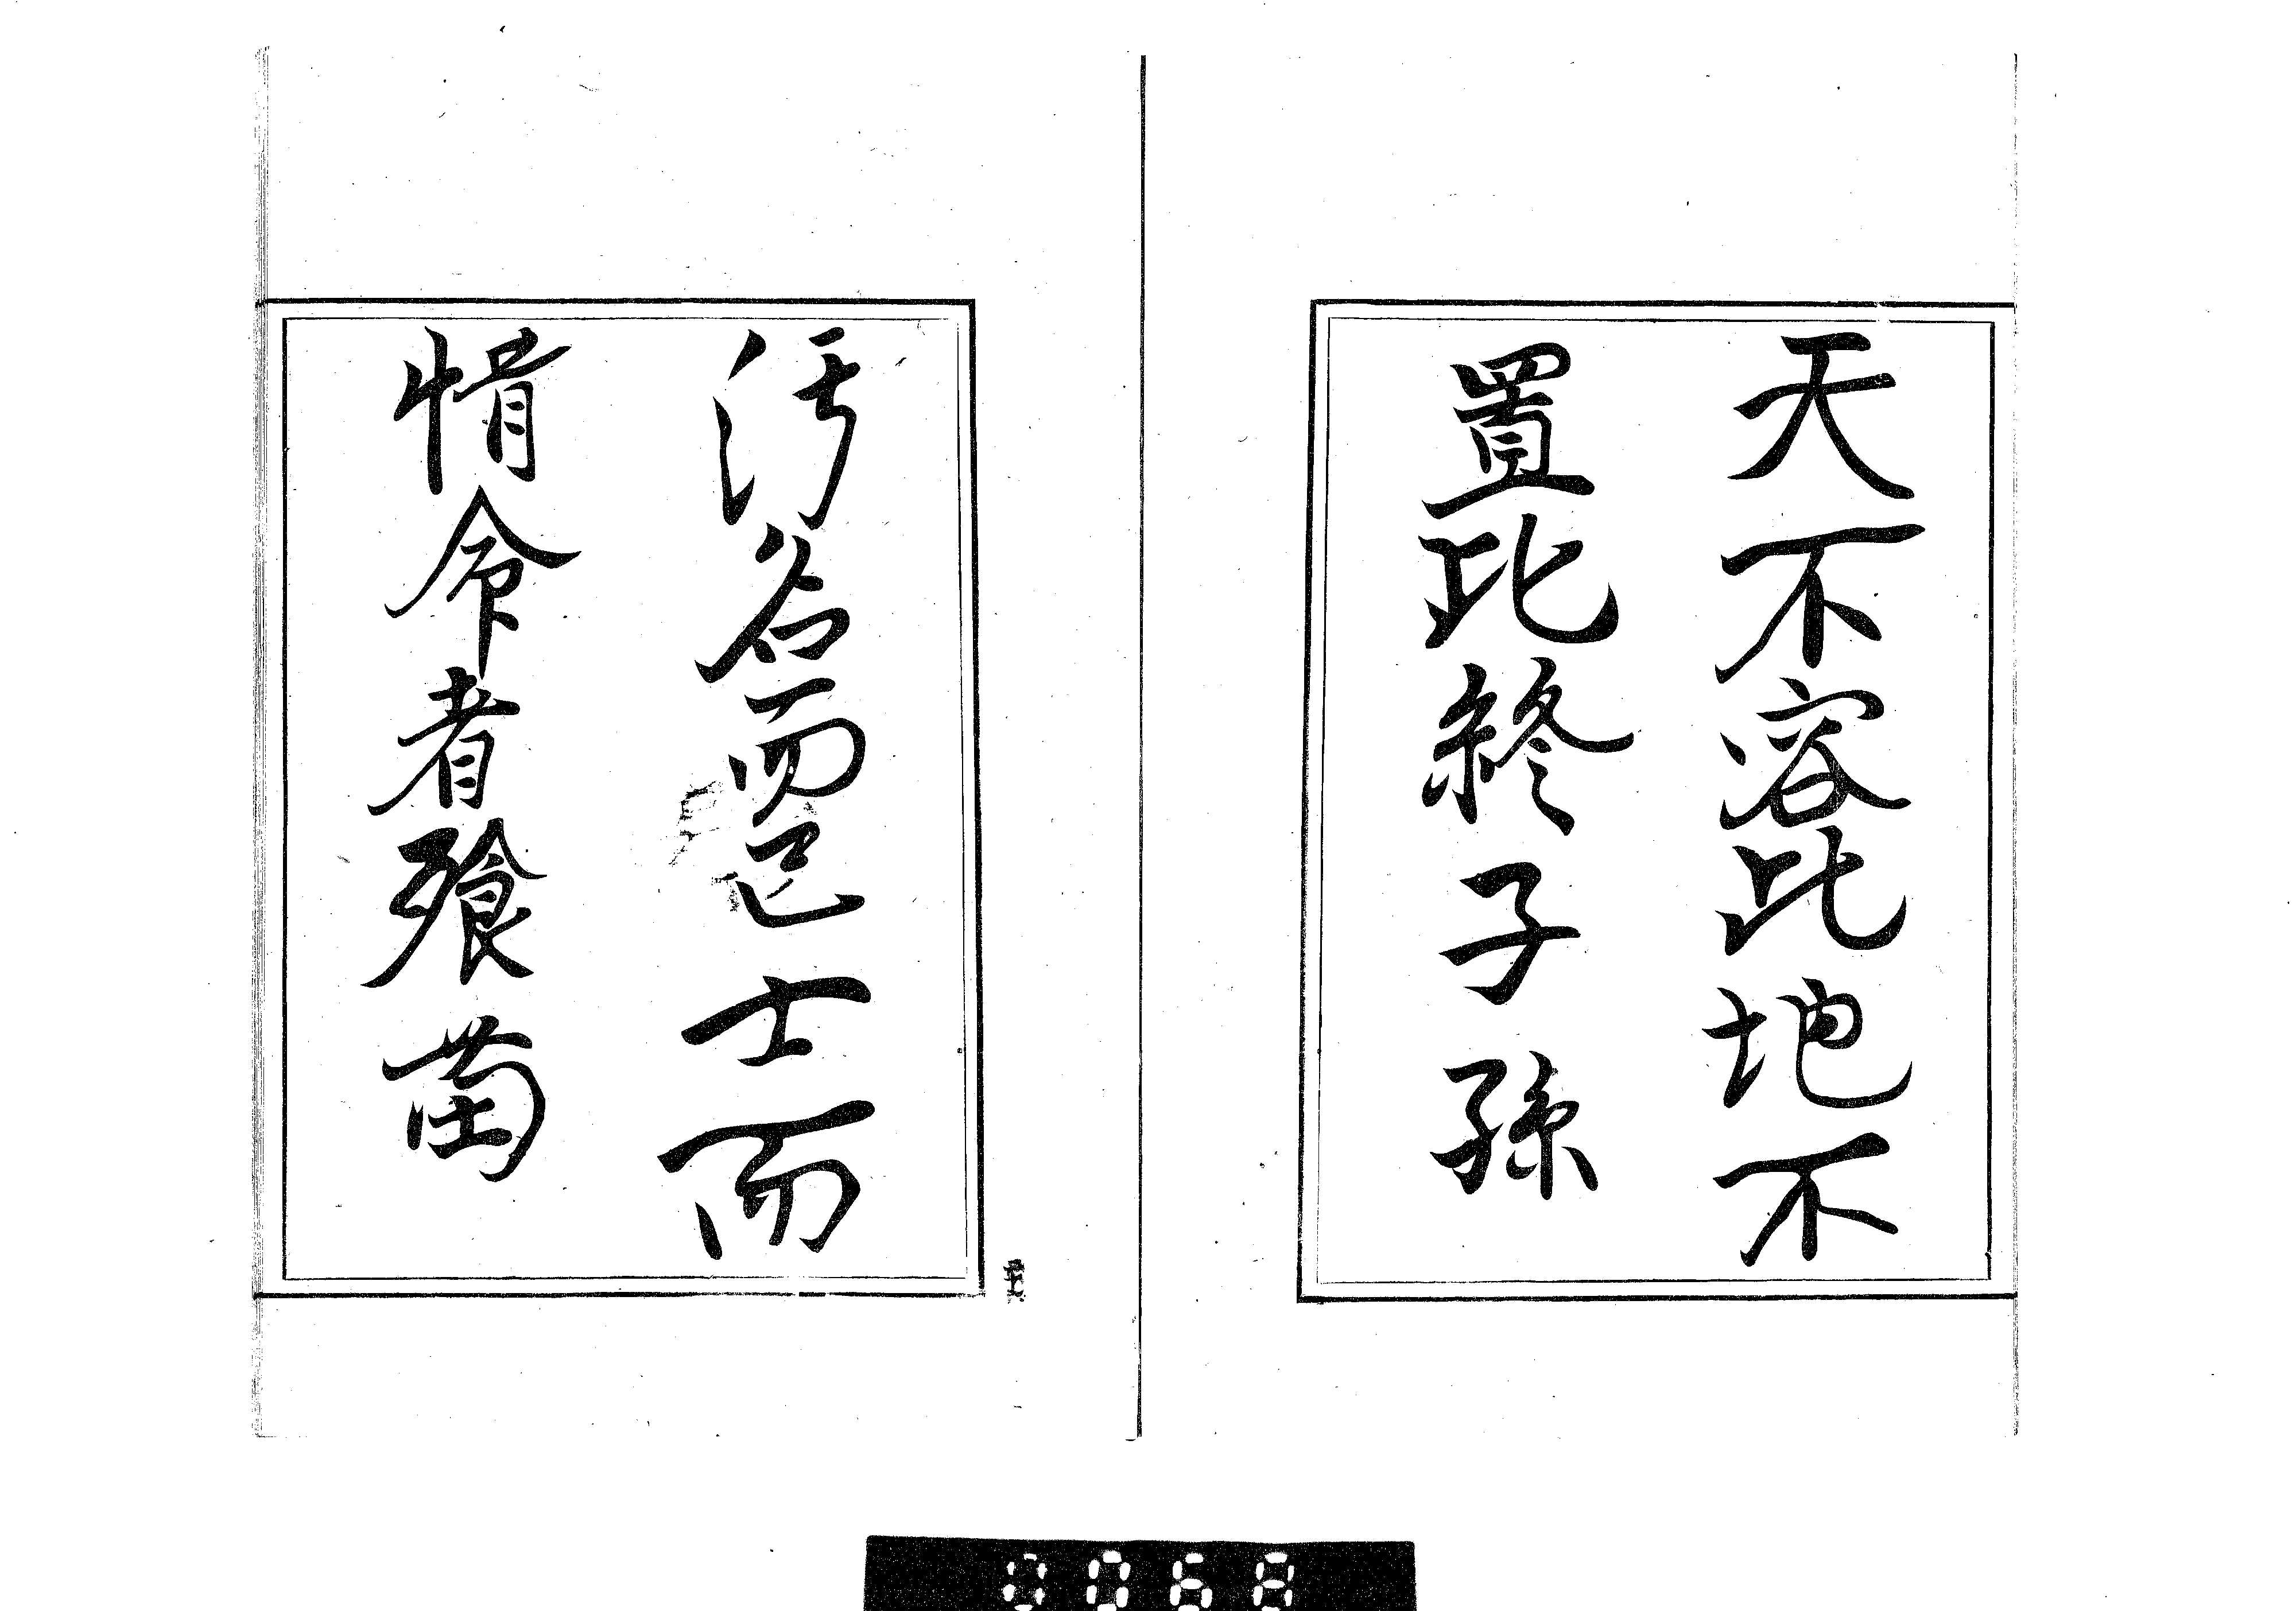 天不容此地不
置此終子孫
汚名而已士而
惰命者飱
0068